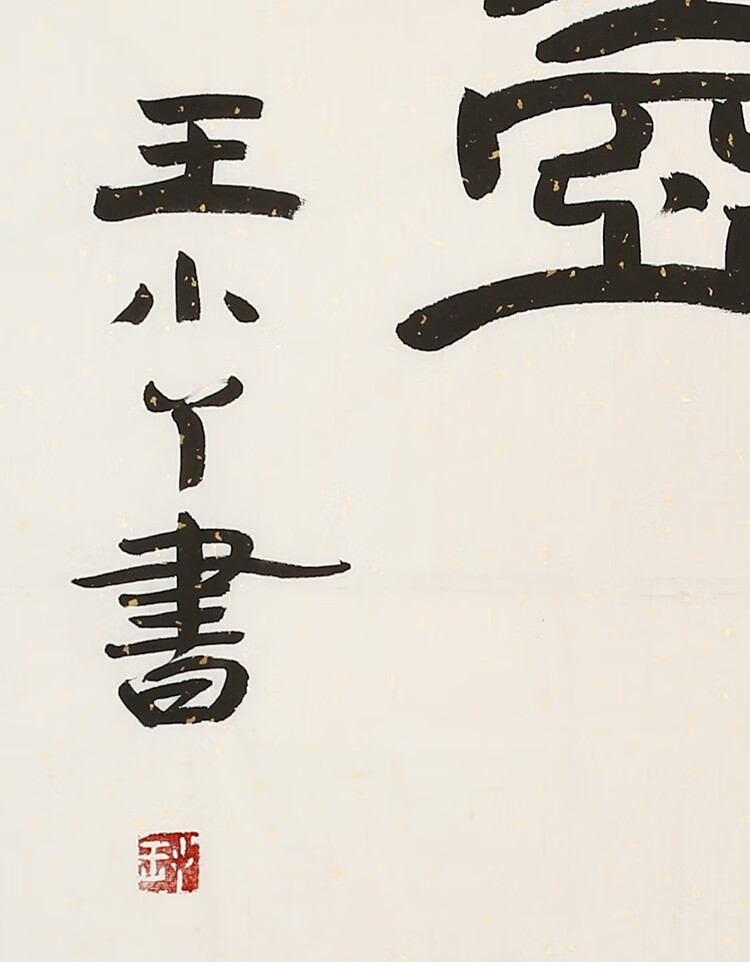 王小丫書